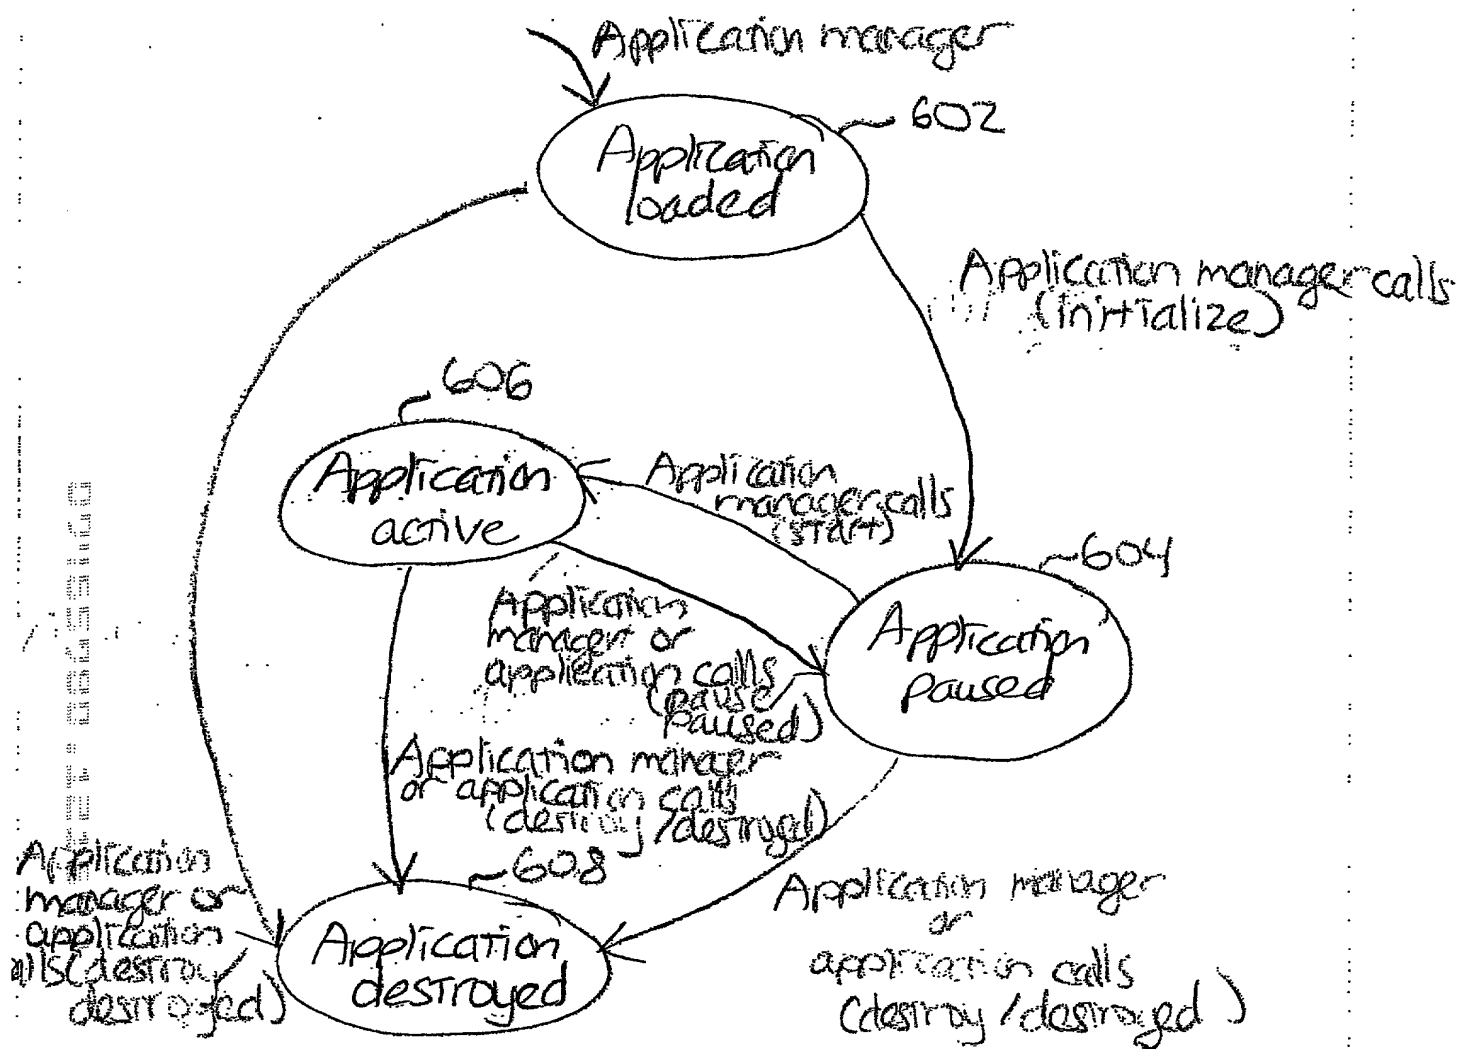 Application manager
602
Application
loaded
Application manager calls
(initialize)
606
Application
active
Application
manager calls
(start)
604
Application
paused
Application
manager or
application calls
(pause
paused)
Application manager
or application calls
(destroy/destroyed)
608
Application
destroyed
Application
manager or
application
(destroy/
destroyed)
Application manager
or
application calls
(destroy/destroyed)